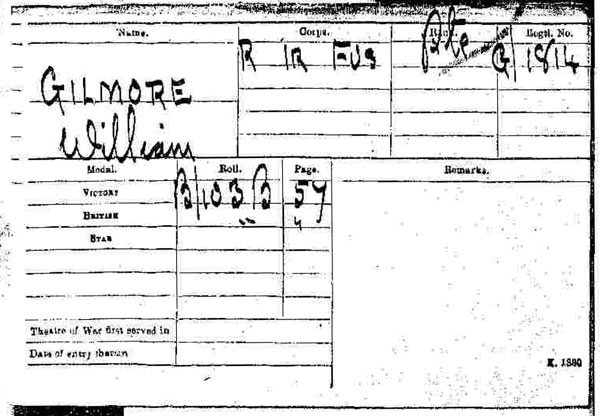 Name. Corps. Rank. Regtl. No.
GILMORE R IR FUS Pte G/1814
William
Medal. Roll. Page. Remarks.
VICTORY B/103B 57
BRITISH " "
STAR
Theatre of War first served in
Date of entry therein
K. 1380